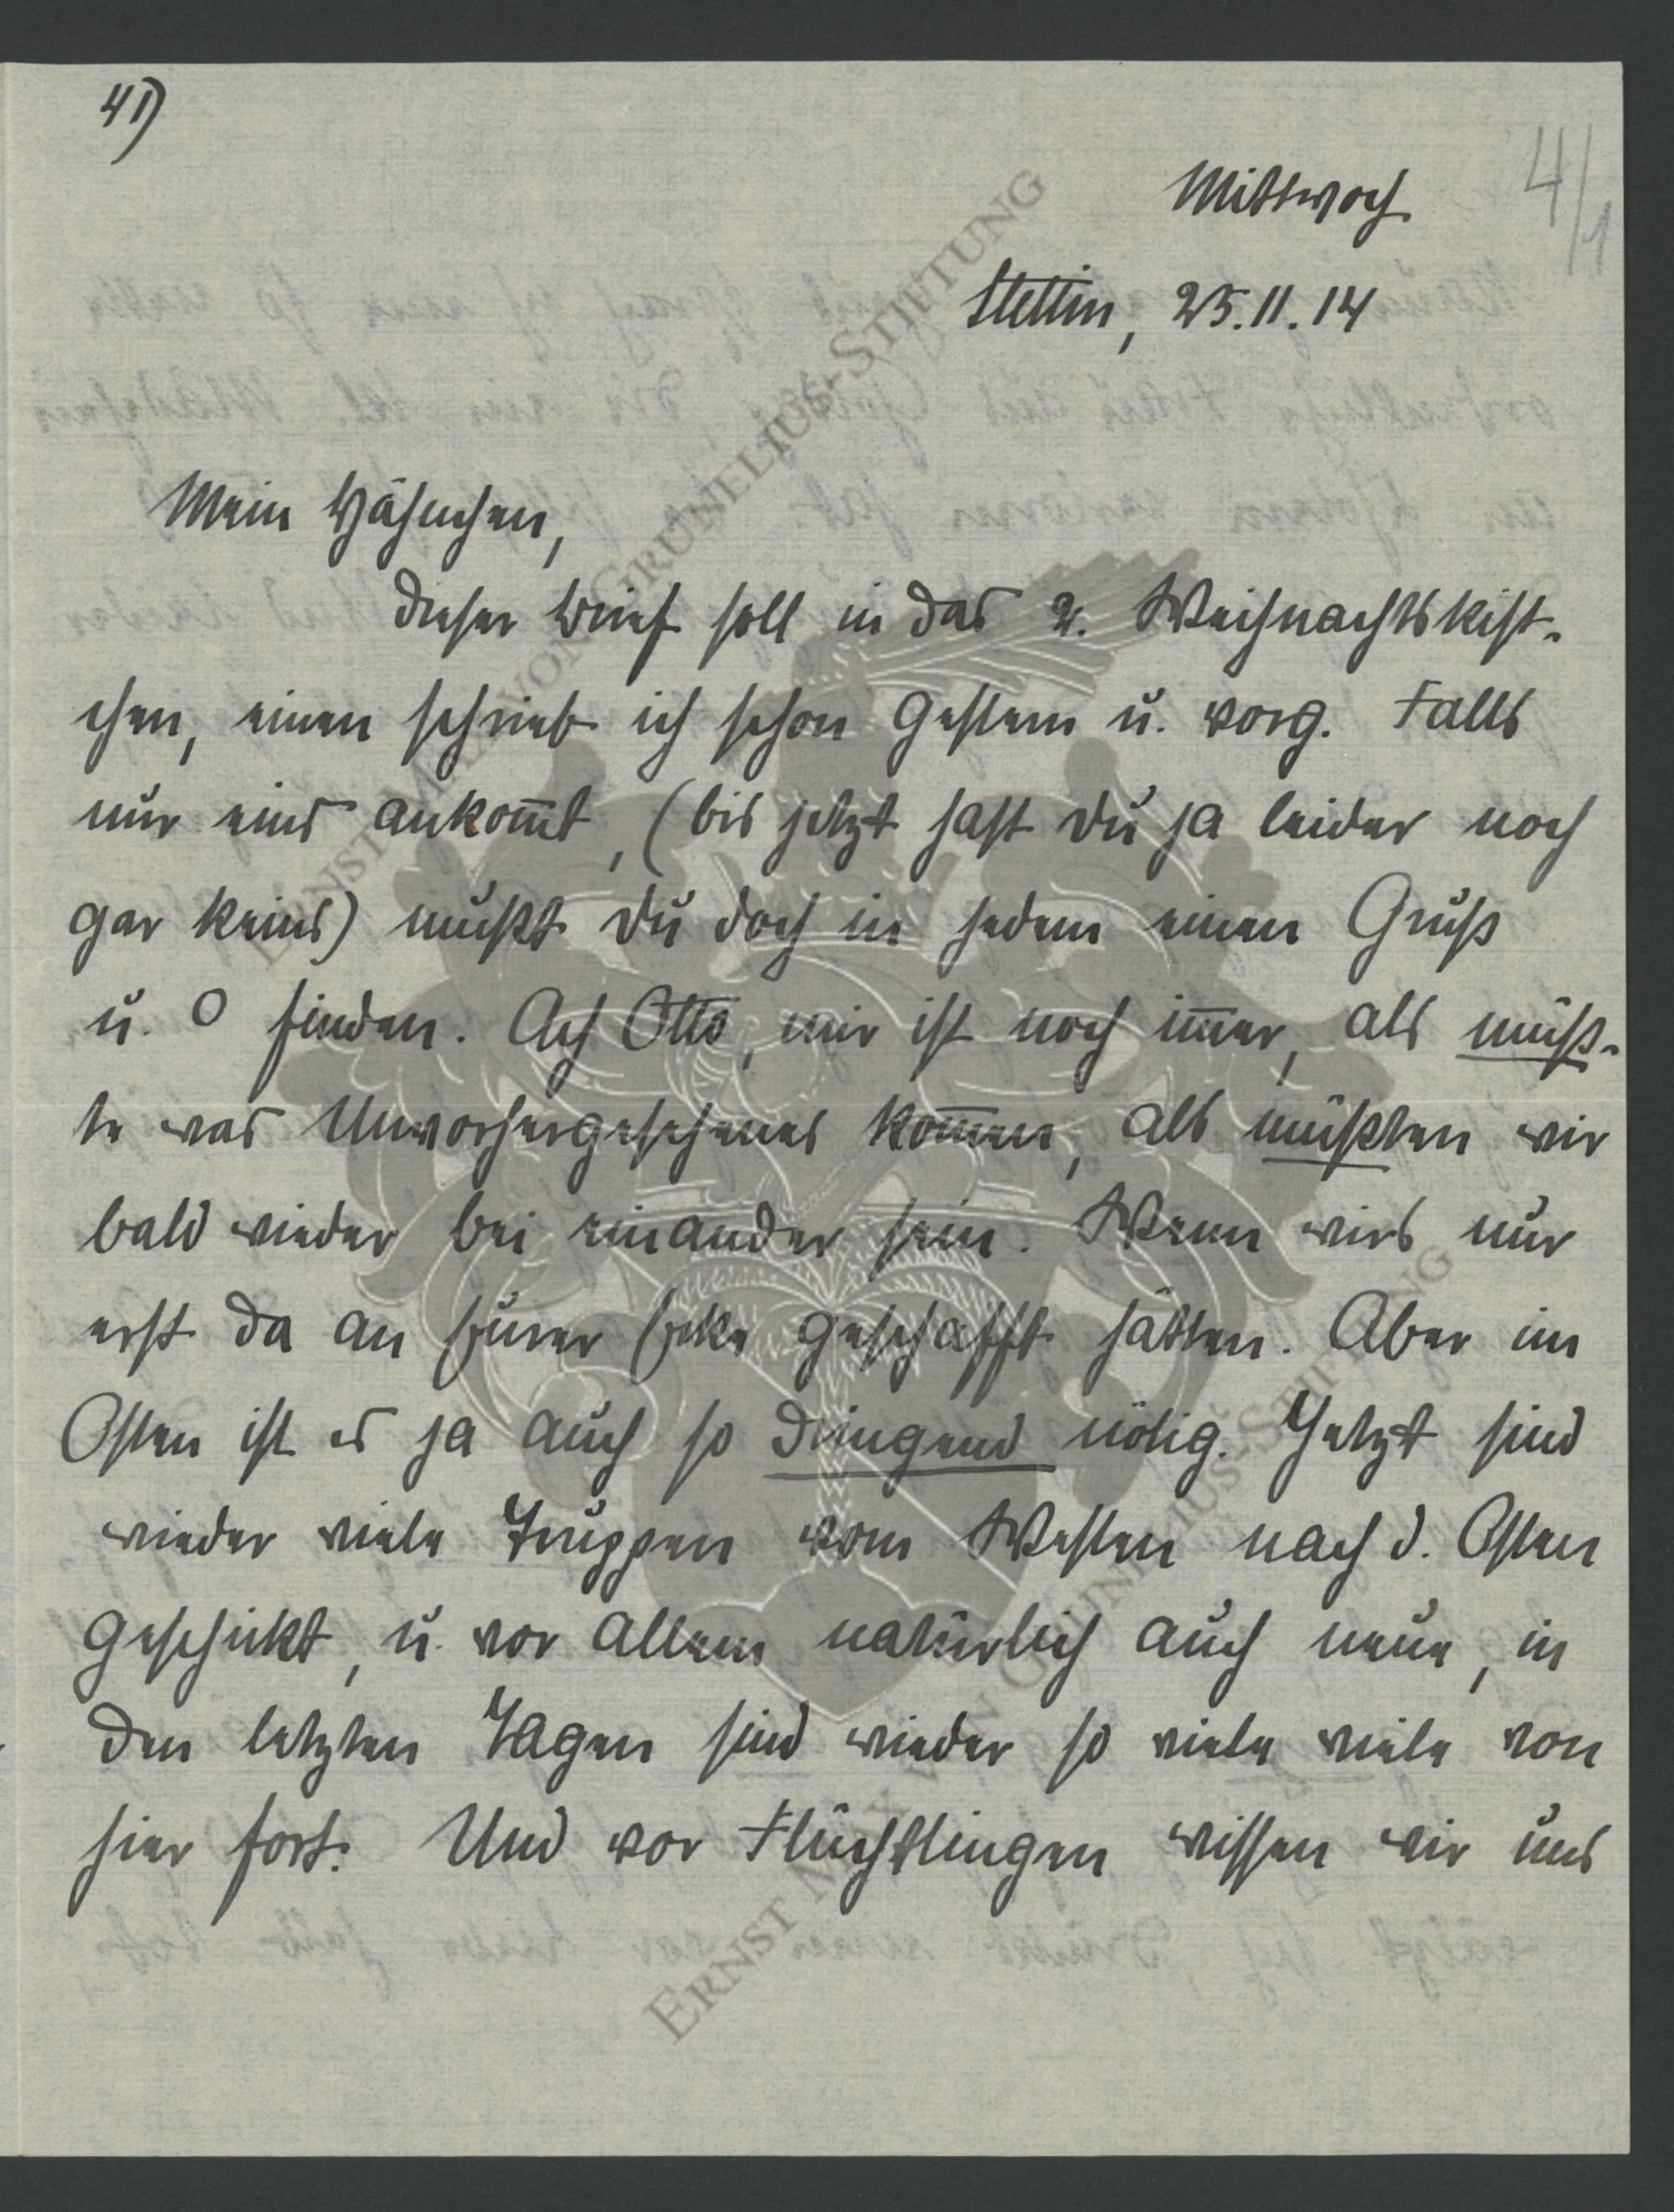 41)
4/1
Mittwoch
Stettin, 25.11.14
Mein Hähnchen,
dieser Brief soll in das 2. Weihnachtskist-
chen, einen schrieb ich schon gestern u. vorg. Falls
nur eins ankom̅t, (bis jetzt hast Du ja leider noch
gar keins) mußt Du doch in jedem einen Gruß
u. O finden. Ach Otto, mir ist noch im̅er, als müß-
te was Unvorhergesehenes kom̅en, als müßten wir
bald wieder bei einander sein. Wenn wirs nur
erst da an Eurer Ecke geschafft hätten. Aber im
Osten ist es ja auch so dringend nötig. Jetzt sind
wieder viele Truppen vom Westen nach d. Osten
geschickt, u. vor allem natürlich auch neue, in
den letzten Tagen sind wieder so viele viele von
hier fort. Und vor Flüchtlingen wissen wir uns
ERNST MAX VON GRUNELIUS-STIFTUNG
ERNST MAX VON GRUNELIUS-STIFTUNG